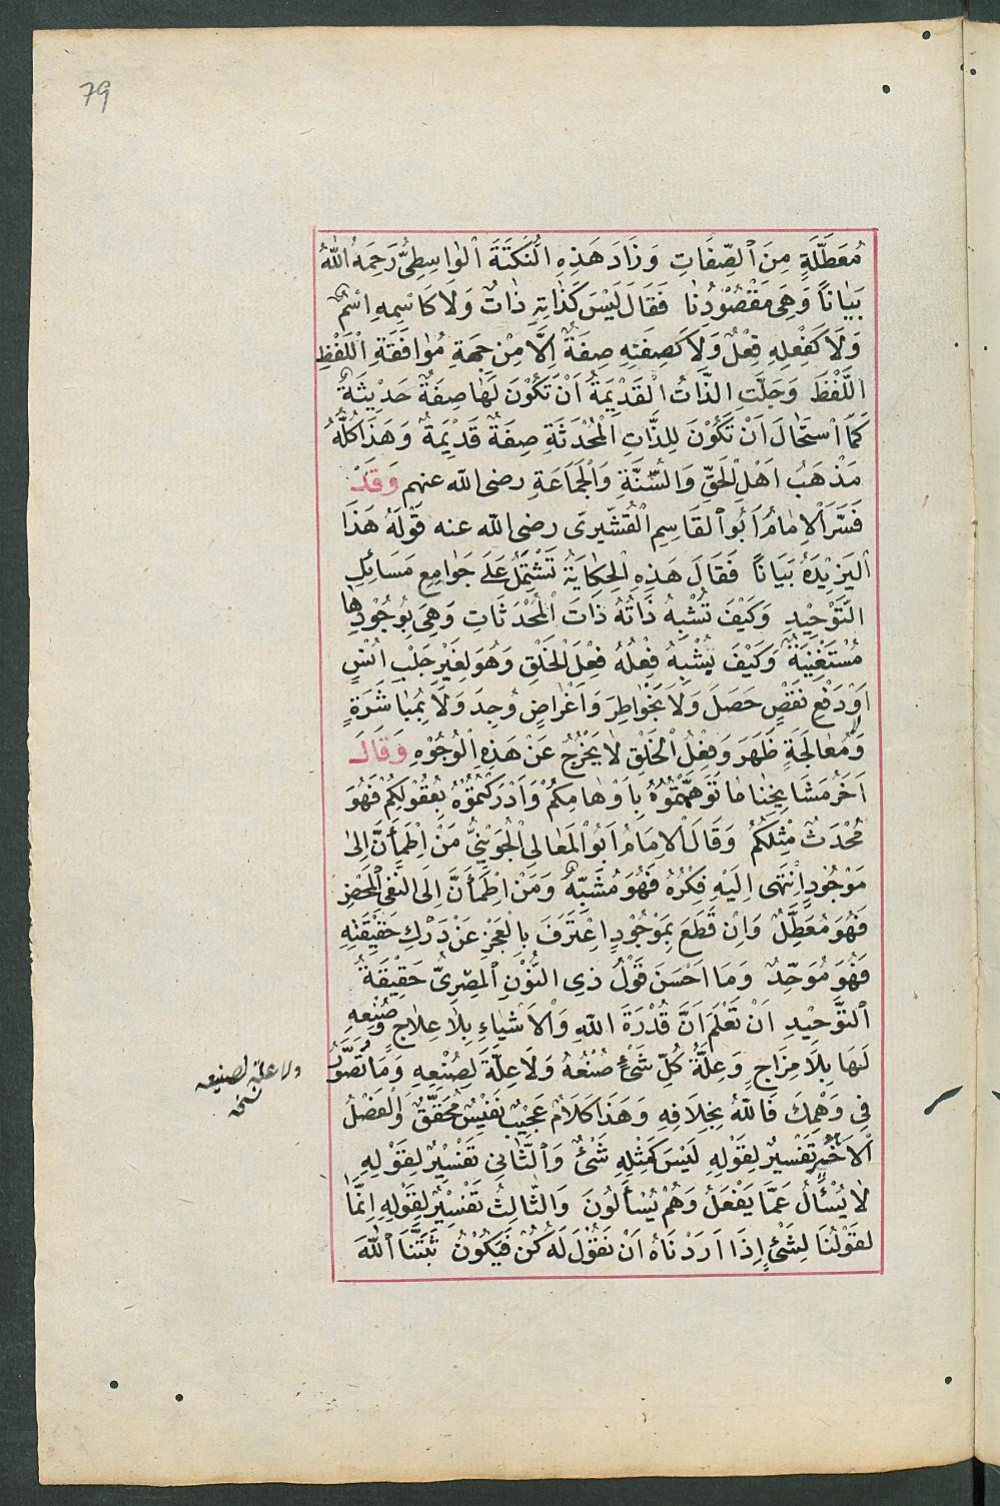 79
مُعَطَّلَةٍ مِنَ الصِّفَاتِ وَزَادَ هَذِهِ النُّكْتَةَ الْوَاسِطِيُّ رَحِمَهُ اللّٰهُ
بَيَانًا وَهِيَ مَقْصُوْدُنَا فَقَالَ لَيْسَ كَذَاتِهِ ذَاتٌ وَلَا كَاسْمِهِ اسْمٌ
وَلَا كَفِعْلِهِ فِعْلٌ وَلَا كَصِفَتِهِ صِفَةٌ اِلَّا مِنْ جِهَةِ مُوَافَقَةِ اللَّفْظِ
اللَّفْظَ وَجَلَّتِ الذَّاتُ الْقَدِيْمَةُ اَنْ تَكُوْنَ لَهَا صِفَةٌ حَدِيْثَةٌ
كَمَا اسْتَحَالَ اَنْ تَكُوْنَ لِلذَّاتِ الْمُحْدَثَةِ صِفَةٌ قَدِيْمَةٌ وَهَذَا كُلُّهُ
مَذْهَبُ اَهْلِ الْحَقِّ وَالسُّنَّةِ وَالْجَمَاعَةِ رضى الله عنهم وَقَدْ
فَسَّرَ الْاِمَامُ اَبُو الْقَاسِمِ الْقُشَيْرِى رضى الله عنه قَوْلَهُ هَذَا
لِيَزِيْدَهُ بَيَانًا فَقَالَ هَذِهِ الْحِكَايَةُ تَشْتَمِلُ عَلَى جَوَامِعِ مَسَائِلِ
التَّوْحِيْدِ وَكَيْفَ تُشْبِهُ ذَاتُهُ ذَاتَ الْمُحْدَثَاتِ وَهِيَ بِوُجُوْدِهَا
مُسْتَغْنِيَةٌ وَكَيْفَ يُشْبِهُ فِعْلُهُ فِعْلَ الْخَلْقِ وَهُوَ لِغَيْرِ جَلْبِ اُنْسٍ
اَوْ دَفْعِ نَقْصٍ حَصَلَ وَلَا بِخَوَاطِرَ وَاَغْرَاضٍ وُجِدَ وَلَا بِمُبَاشَرَةٍ
وَمُعَالَجَةٍ ظَهَرَ وَفِعْلُ الْخَلْقِ لَا يَخْرُجُ عَنْ هَذِهِ الْوُجُوْهِ وَقَالَ
اَخَرُ مَشَايِخِنَا مَا تَوَهَّمْتُمُوْهُ بِاَوْهَامِكُمْ وَاَدْرَكْتُمُوْهُ بِعُقُوْلِكُمْ فَهُوَ
مُحْدَثٌ مِثْلُكُمْ وَقَالَ الْاِمَامُ اَبُو الْمَعَالِى الْجُوَيْنِيُّ مَنْ اِطْمَأَنَّ اِلَى
مَوْجُوْدٍ اِنْتَهَى اِلَيْهِ فِكْرُهُ فَهُوَ مُشَبِّهٌ وَمَنْ اِطْمَأَنَّ اِلَى النَّفْىِ الْمَحْضِ
فَهُوَ مُعَطِّلٌ وَاِنْ قَطَعَ بِمَوْجُوْدٍ اِعْتَرَفَ بِالْعَجْزِ عَنْ دَرْكِ حَقِيْقَتِهِ
فَهُوَ مُوَحِّدٌ وَمَا اَحْسَنَ قَوْلُ ذِى النُّوْنِ الْمِصْرِىِّ حَقِيْقَةُ
التَّوْحِيْدِ اَنْ تَعْلَمَ اَنَّ قُدْرَةَ اللّٰهِ وَالْاَشْيَاءِ بِلَا عِلَاجٍ وَصُنْعِهِ
لَهَا بِلَا مِزَاجٍ وَعِلَّةُ كُلِّ شَىْءٍ صُنْعُهُ وَلَا عِلَّةَ لِصُنْعِهِ وَمَا تُصُوِّرَ
ولا علة لصنيعه
نسخه
فِى وَهْمِكَ فَاللّٰهُ بِخِلَافِهِ وَهَذَا كَلَامٌ عَجِيْبٌ نَفِيْسٌ مُحَقَّقٌ وَالْفَصْلُ
الْاَخَرُ تَفْسِيْرٌ لِقَوْلِهِ لَيْسَ كَمِثْلِهِ شَىْءٌ وَالثَّانِى تَفْسِيْرٌ لِقَوْلِهِ
لَا يُسْأَلُ عَمَّا يَفْعَلُ وَهُمْ يُسْأَلُوْنَ وَالثَّالِثُ تَفْسِيْرٌ لِقَوْلِهِ اِنَّمَا
لقَوْلُنَا لِشَىْءٍ اِذَا اَرَدْنَاهُ اَنْ نَقُوْلَ لَهُ كُنْ فَيَكُوْنُ ثَبَّتَنَا اللّٰهُ